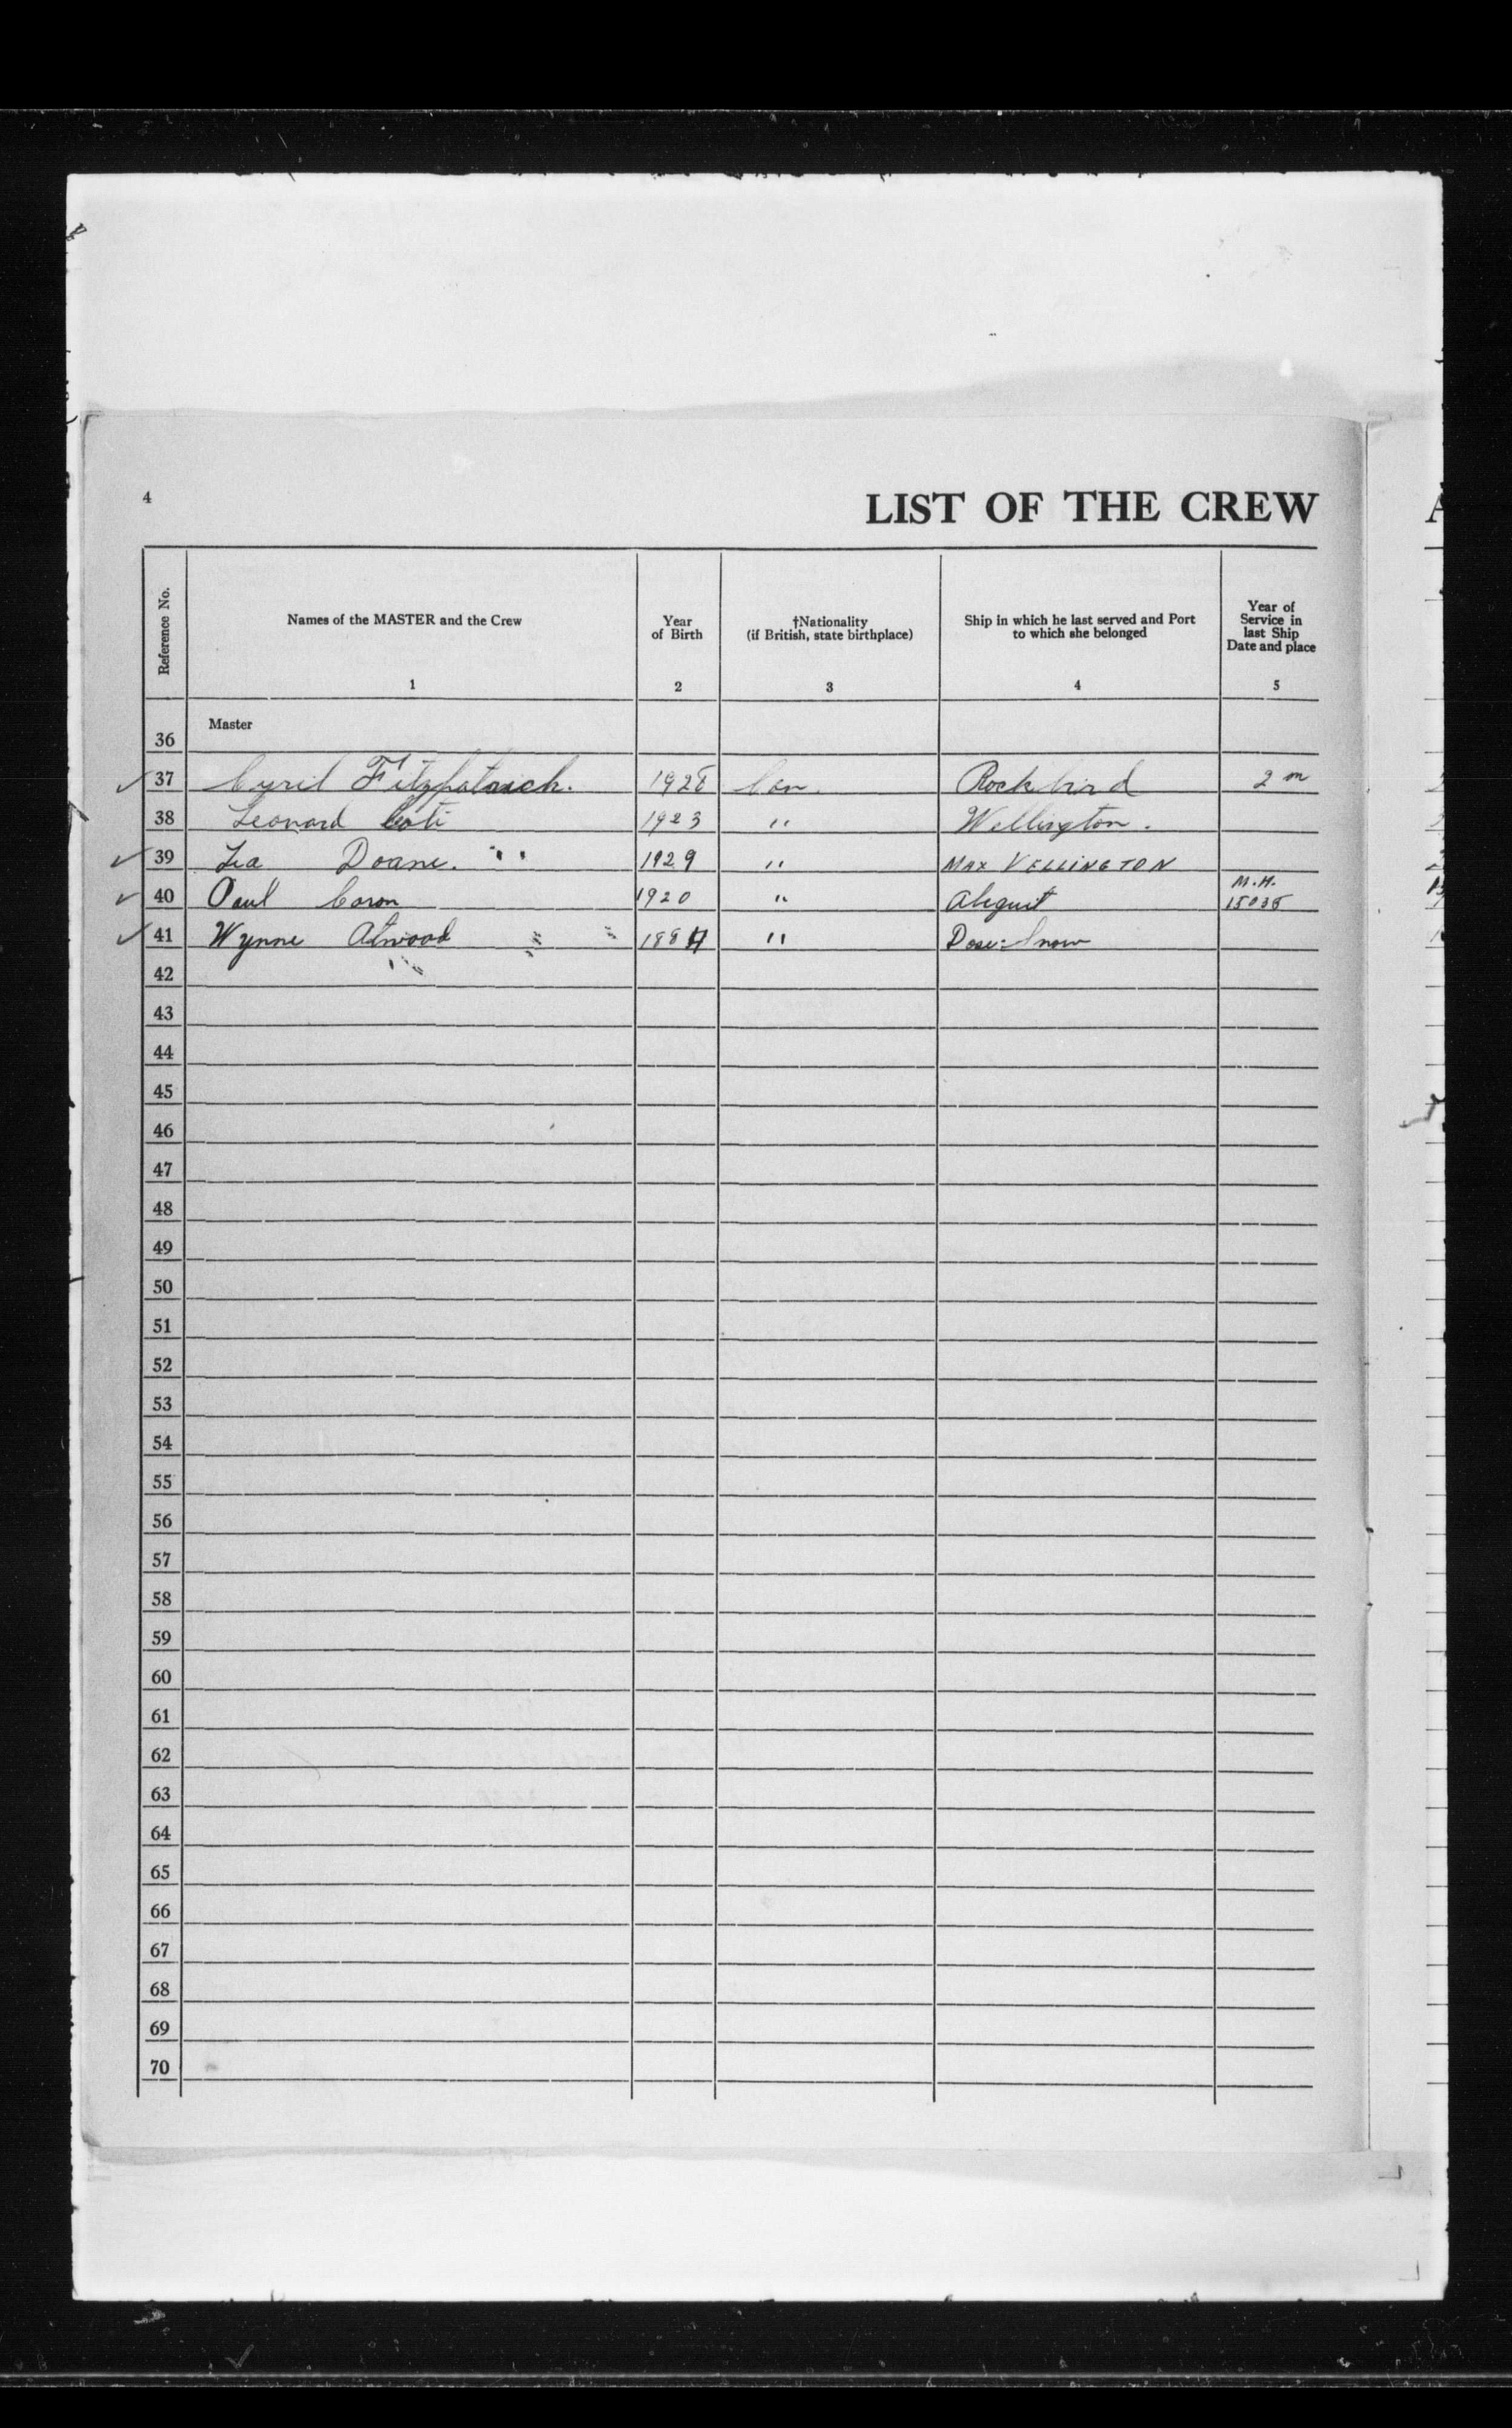 4
LIST OF THE CREW
Reference No.
Names of the MASTER and the Crew
1
Year
of Birth
2
†Nationality
(if British, state birthplace)
3
Ship in which he last served and Port
to which she belonged
4
Year of
Service in
last Ship
Date and place
5
36 Master
37 Cyril Fitzpatrick. 1928 Can. Rockbird 2 m
38 Leonard 1923 " Wellington.
39 Doane. " 1929 " MAX VELLINGTON
M.H.
40 Paul Caron 1920 " 15035
41 Wynne Atwood 188 " Snow
42
43
44
45
46
47
48
49
50
51
52
53
54
55
56
57
58
59
60
61
62
63
64
65
66
67
68
69
70